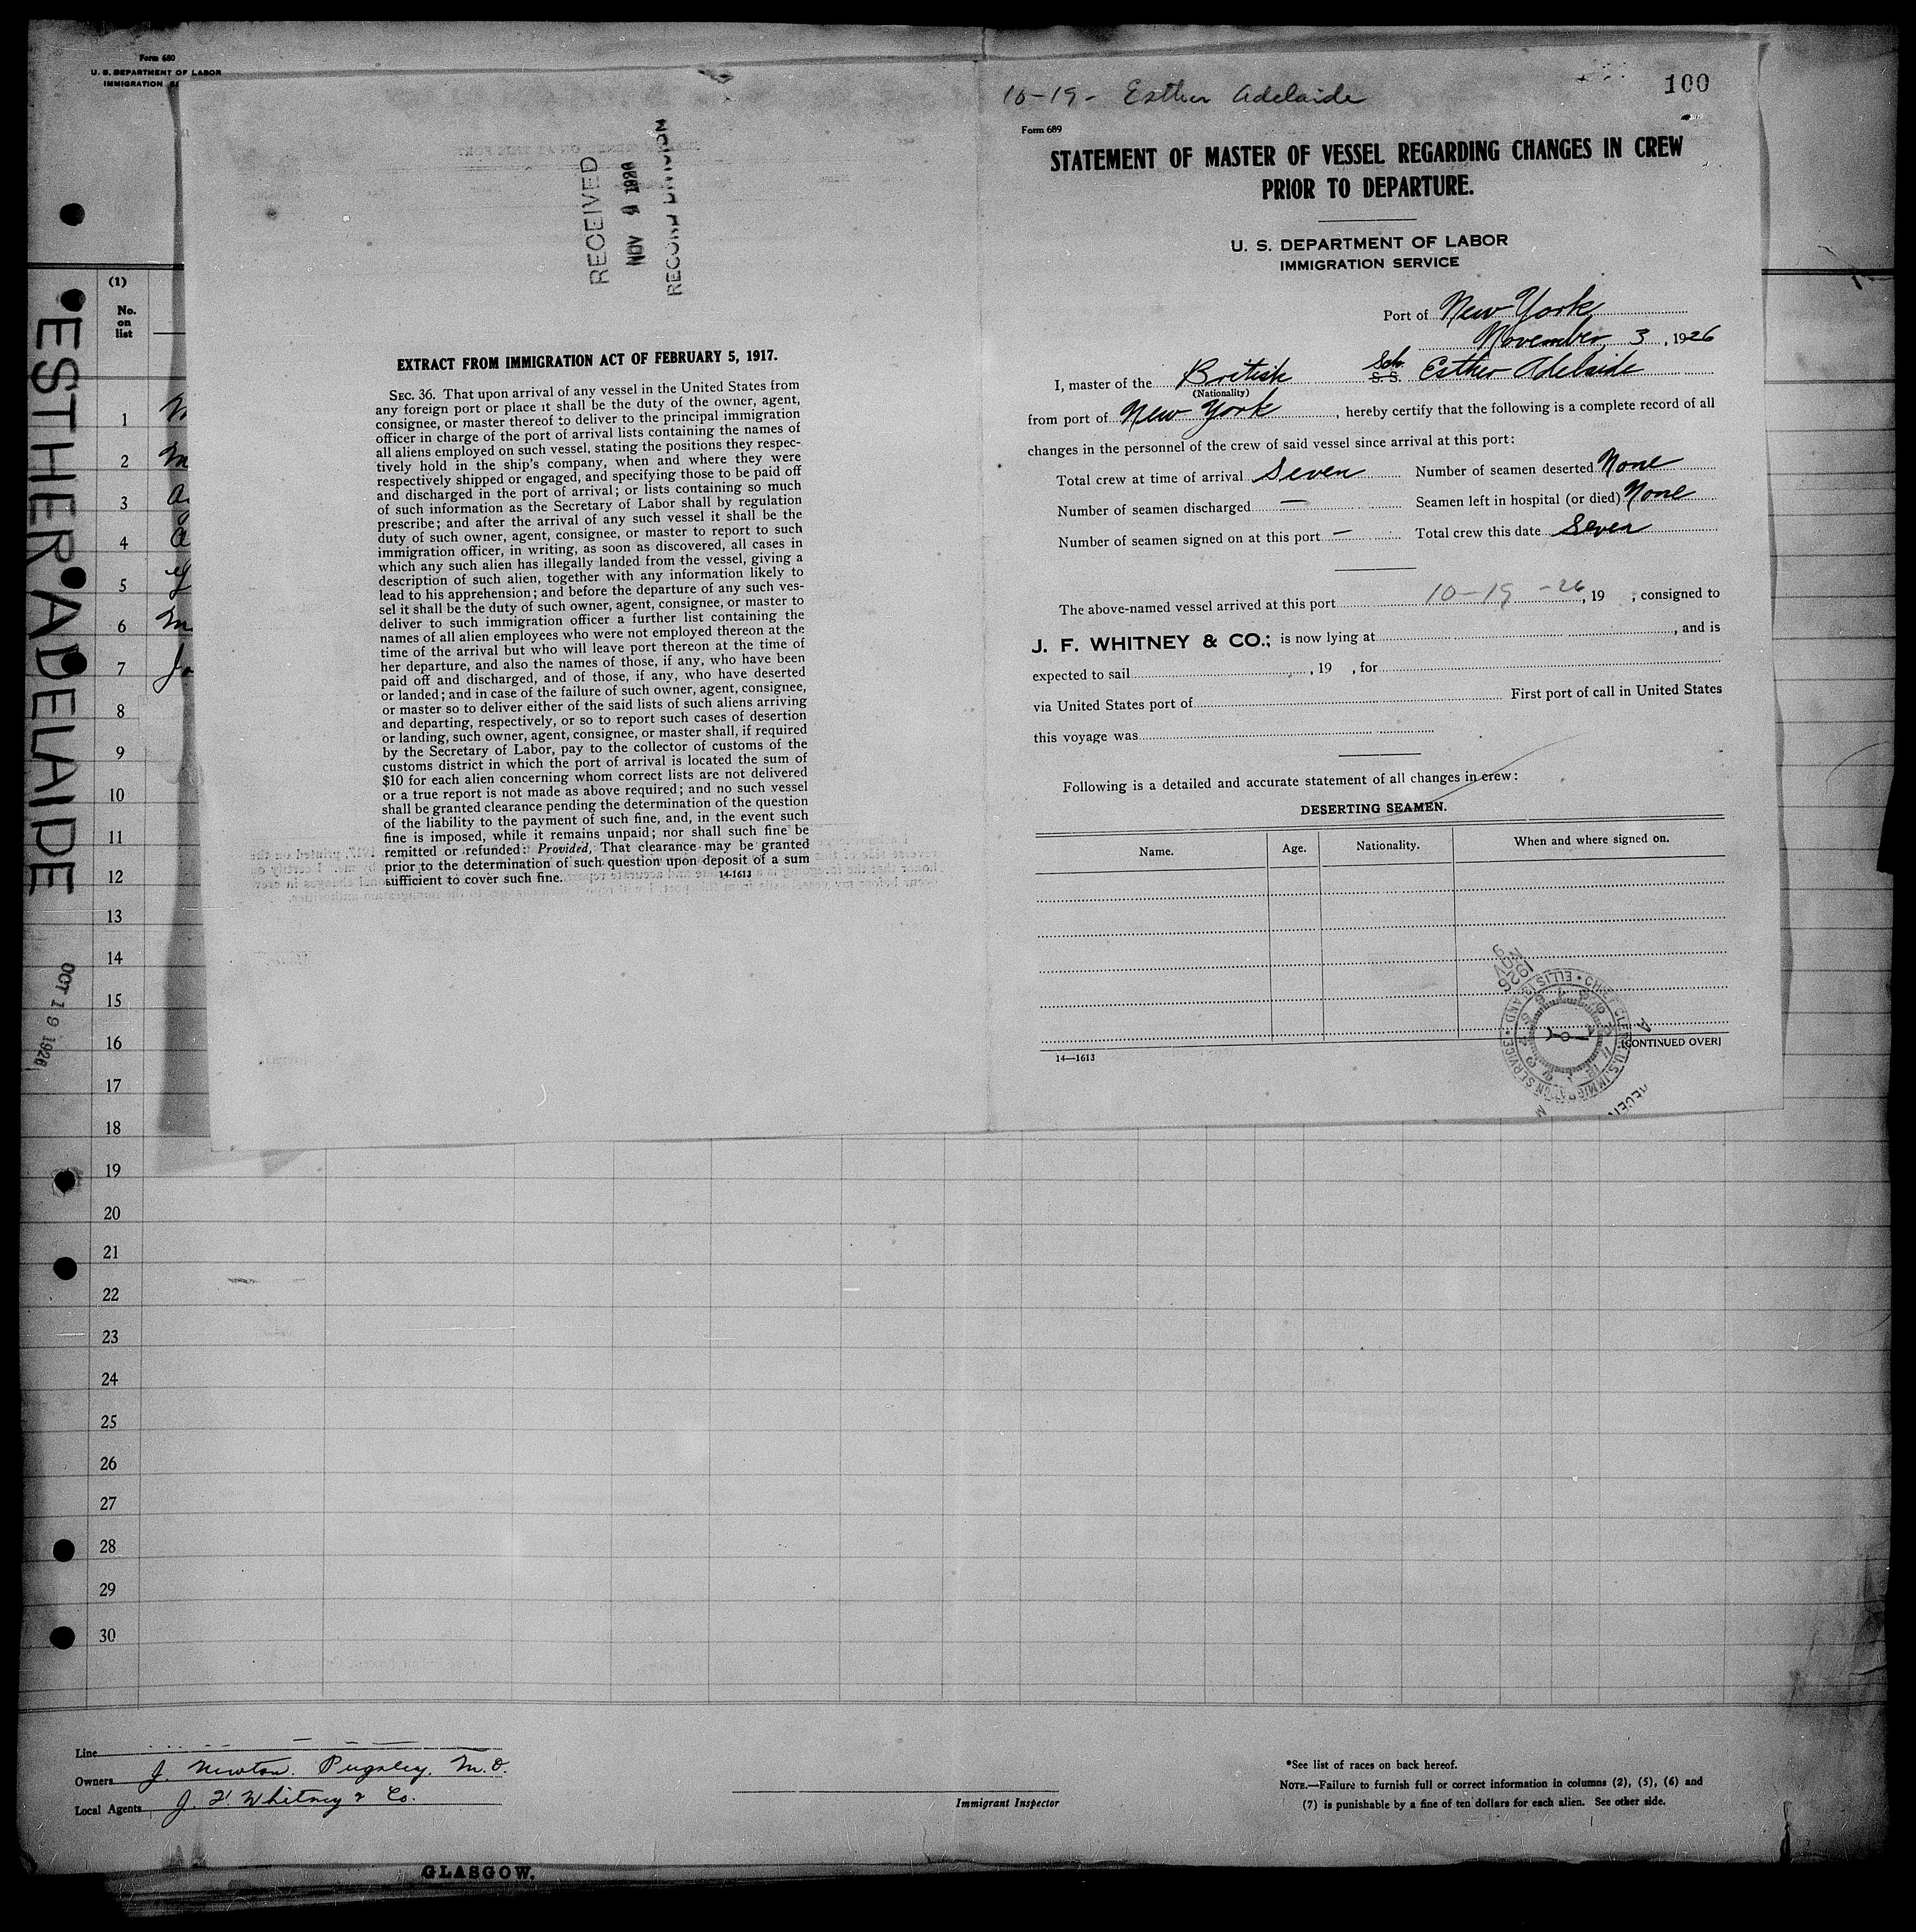 Form 680
U. S. DEPARTMENT OF LABOR
IMMIGRATION
(1)
No.
on
list
1
2
3
4
5
6
7
8
9
10
11
12
13
14
15
16
17
18
19
20
21
22
23
24
25
26
27
28
29
30
ESTHER ADELAIDE
OCT 19 1926
RECEIVED
NOV 9 1926
RECORD DIVISION
EXTRACT FROM IMMIGRATION ACT OF FEBRUARY 5, 1917.
SEC. 36. That upon arrival of any vessel in the United States from
any foreign port or place it shall be the duty of the owner, agent,
consignee, or master thereof to deliver to the principal immigration
officer in charge of the port of arrival lists containing the names of
all aliens employed on such vessel, stating the positions they respec-
tively hold in the ship's company, when and where they were
respectively shipped or engaged, and specifying those to be paid off
and discharged in the port of arrival; or lists containing so much
of such information as the Secretary of Labor shall by regulation
prescribe; and after the arrival of any such vessel it shall be the
duty of such owner, agent, consignee, or master to report to such
immigration officer, in writing, as soon as discovered, all cases in
which any such alien has illegally landed from the vessel, giving a
description of such alien, together with any information likely to
lead to his apprehension; and before the departure of any such ves-
sel it shall be the duty of such owner, agent, consignee, or master to
deliver to such immigration officer a further list containing the
names of all alien employees who were not employed thereon at the
time of the arrival but who will leave port thereon at the time of
her departure, and also the names of those, if any, who have been
paid off and discharged, and of those, if any, who have deserted
or landed; and in case of the failure of such owner, agent, consignee,
or master so to deliver either of the said lists of such aliens arriving
and departing, respectively, or so to report such cases of desertion
or landing, such owner, agent, consignee, or master shall, if required
by the Secretary of Labor, pay to the collector of customs of the
customs district in which the port of arrival is located the sum of
$10 for each alien concerning whom correct lists are not delivered
or a true report is not made as above required; and no such vessel
shall be granted clearance pending the determination of the question
of the liability to the payment of such fine, and, in the event such
fine is imposed, while it remains unpaid; nor shall such fine be
remitted or refunded: Provided, That clearance may be granted
prior to the determination of such question upon deposit of a sum
sufficient to cover such fine. 14-1613
10-19- Esther Adelaide
100
Form 689
STATEMENT OF MASTER OF VESSEL REGARDING CHANGES IN CREW
PRIOR TO DEPARTURE.
U. S. DEPARTMENT OF LABOR
IMMIGRATION SERVICE
Port of New York
November 3, 1926
I, master of the British S. S. Sch Esther Adelaide
(Nationality)
from port of New York, hereby certify that the following is a complete record of all
changes in the personnel of the crew of said vessel since arrival at this port:
Total crew at time of arrival Seven Number of seamen deserted None
Number of seamen discharged — Seamen left in hospital (or died) None
Number of seamen signed on at this port — Total crew this date Seven
The above-named vessel arrived at this port 10-19-26, 19 , consigned to
J. F. WHITNEY & CO.; is now lying at , and is
expected to sail , 19 , for
via United States port of First port of call in United States
this voyage was
Following is a detailed and accurate statement of all changes in crew:
DESERTING SEAMEN.
Name. Age. Nationality. When and where signed on.
14—1613
CONTINUED OVER]
CHIEF CLERK U.S. IMMIGRATION SERVICE ELLIS ISLAND
Line
Owners J. Newton Pugsley, M.O.
Local Agents J. F. Whitney & Co.
Immigrant Inspector
*See list of races on back hereof.
NOTE.—Failure to furnish full or correct information in columns (2), (5), (6) and
(7) is punishable by a fine of ten dollars for each alien. See other side.
GLASGOW.